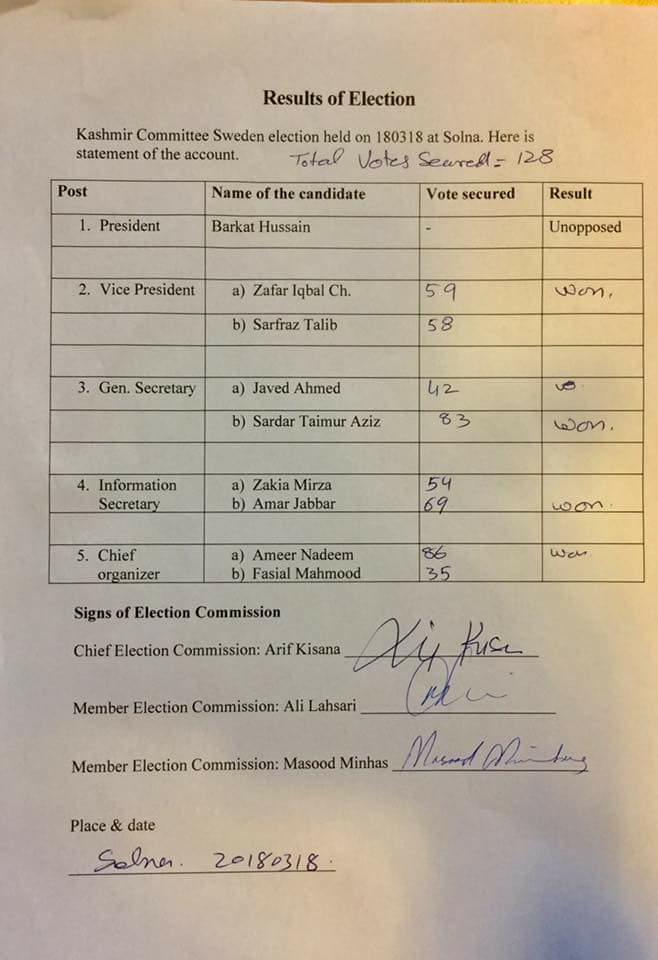 Results of Election
Kashmir Committee Sweden election held on 180318 at Solna. Here is
statement of the account. Total Votes Seured = 128
Post Name of the candidate Vote secured Result
1. President Barkat Hussain - Unopposed
2. Vice President a) Zafar Iqbal Ch. 59 won.
b) Sarfraz Talib 58
3. Gen. Secretary a) Javed Ahmed 42
b) Sardar Taimur Aziz 83 won.
4. Information a) Zakia Mirza 54
Secretary b) Amar Jabbar 69 won.
5. Chief a) Ameer Nadeem 86 won
organizer b) Fasial Mahmood 35
Signs of Election Commission
Chief Election Commission: Arif Kisana
Member Election Commission: Ali Lahsari
Member Election Commission: Masood Minhas Masood
Place & date
Solna. 20180318.